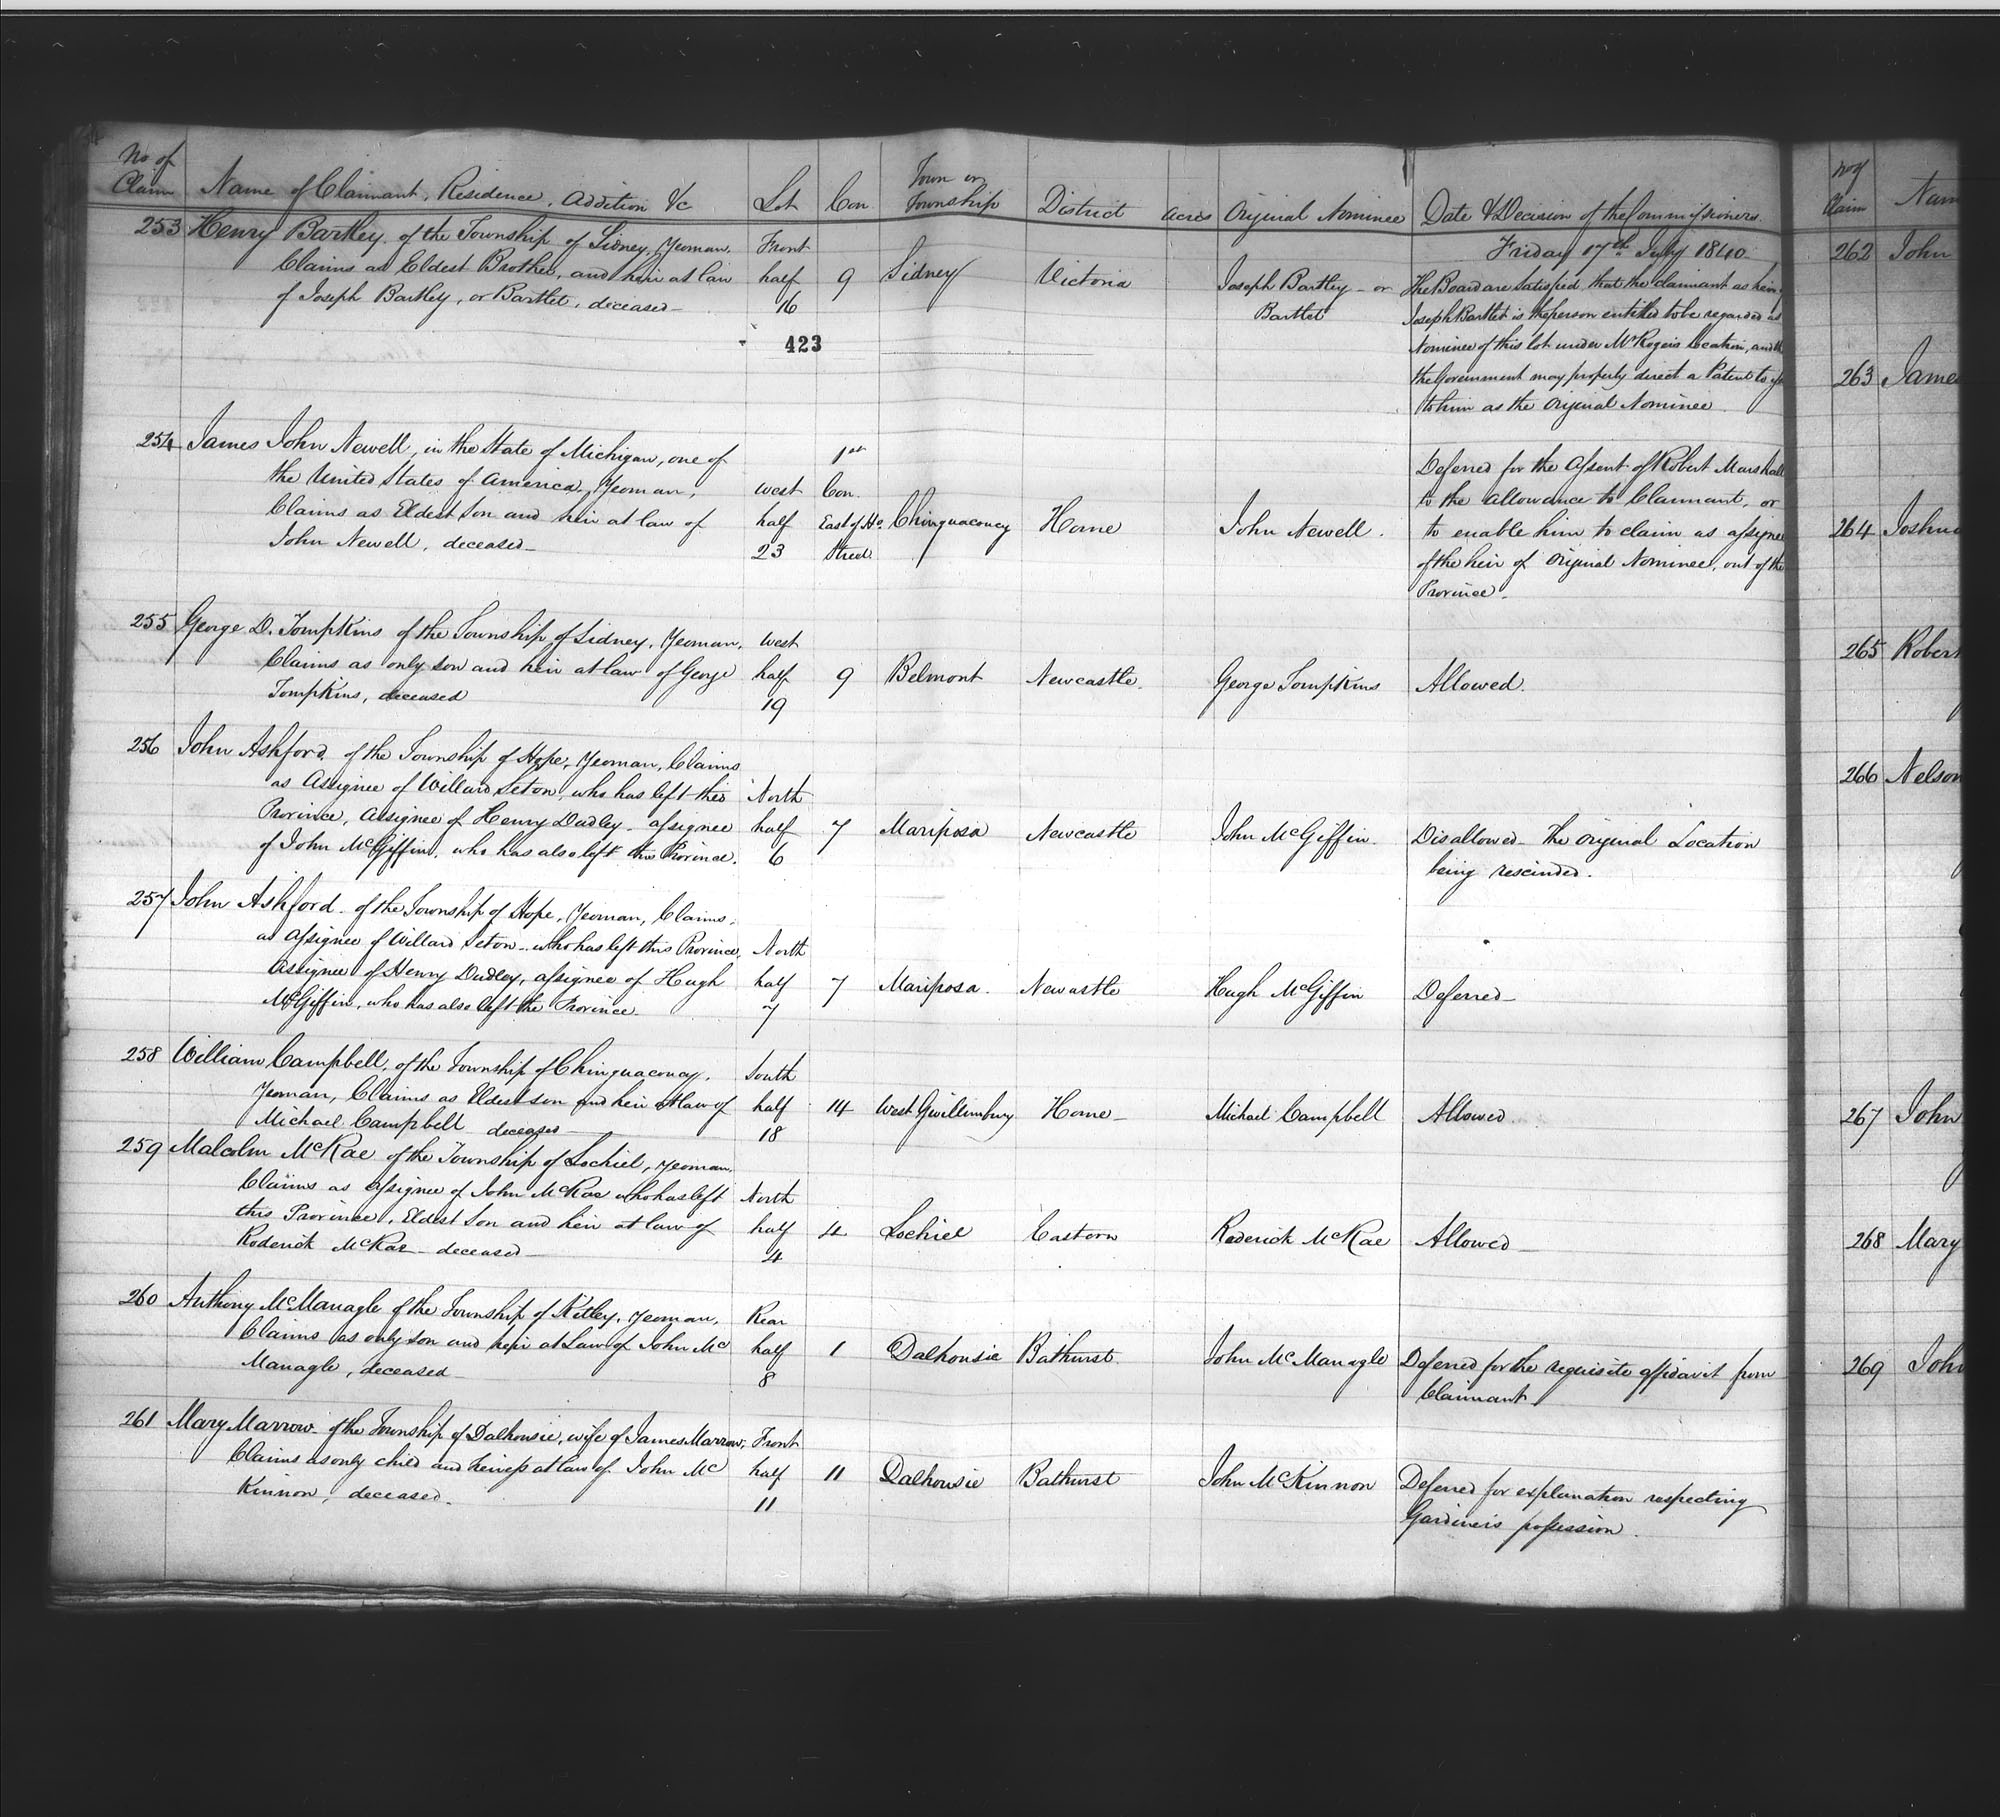 No of Claim Name of Claimant, Residence, Addition &c Lot Con Town or Township District Acres Original Nominee Date & Decision of the Commissioners.
Friday 17th July 1840.
253 Henry Bartley of the Township of Sidney, Yeoman,
Claims as Eldest Brother, and heir at law
of Joseph Bartley, or Bartlet, deceased
Front
half
16
9
Sidney
Victoria
Joseph Bartley - or
Bartlet
The Board are satisfied that the claimant as heir
Joseph Bartlet is the person entitled to be regarded as
Nominee of this lot under Mr Rogers location, and
the Government may properly direct a Patent to
to him as the Original Nominee
423
254 James John Newell, in the State of Michigan, one of
the United States of America, Yeoman,
Claims as Eldest Son and heir at law of
John Newell, deceased
West
half
23
1st
Con.
East of Ho.
Street
Chinguacoucy
Home
John Newell.
Deferred for the Assent of Robert Marshall
to the allowance to Claimant, or
to enable him to claim as assignee
of the heir of Original Nominee, out of the
Province.
255 George D. Tompkins of the Township of Sidney, Yeoman,
Claims as only son and heir at law of George
Tompkins, deceased
West
half
19
9
Belmont
Newcastle.
George Tompkins
Allowed.
256 John Ashford of the Township of Hope, Yeoman, Claims
as Assignee of Willard Seton, who has left this
Province, Assignee of Henry Dudley - assignee
of John McGiffin, who has also left this Province.
North
half
6
7
Mariposa
Newcastle
John McGiffin.
Disallowed - The Original Location
being rescinded.
257 John Ashford of the Township of Hope, Yeoman, Claims
as Assignee of Willard Seton - who has left this Province,
Assignee of Henry Dudley, assignee of Hugh
McGiffin, who has also left the Province.
North
half
7
7
Mariposa.
Newcastle
Hugh McGiffin
Deferred
258 William Campbell, of the Township of Chinguacoucy,
Yeoman, Claims as Eldest son and heir at law of
Michael Campbell deceased
South
half
18
14
West Gwillimbury
Home
Michael Campbell
Allowed
259 Malcolm McRae of the Township of Lochiel, Yeoman,
Claims as assignee of John McRae who has left
this Province, Eldest Son and heir at law of
Roderick McRae - deceased
North
half
4
4
Lochiel
Eastern
Roderick McRae
Allowed
260 Anthony McManagle of the Township of Kitley, Yeoman,
Claims as only son and heir at Law of John Mc
Managle, deceased
Rear
half
8
1
Dalhousie
Bathurst.
John McManagle
Deferred for the requisite affidavit from
Claimant
261 Mary Marrow of the Township of Dalhousie, wife of James Marrow,
Claims as only child and heiress at law of John Mc
Kinnon, deceased.
Front
half
11
11
Dalhousie
Bathurst
John McKinnon
Deferred for explanation respecting
Gardiner's possession.
No of Claim Nam
262 John
263 James
264 Joshua
265 Robert
266 Nelson
267 John
268 Mary
269 John